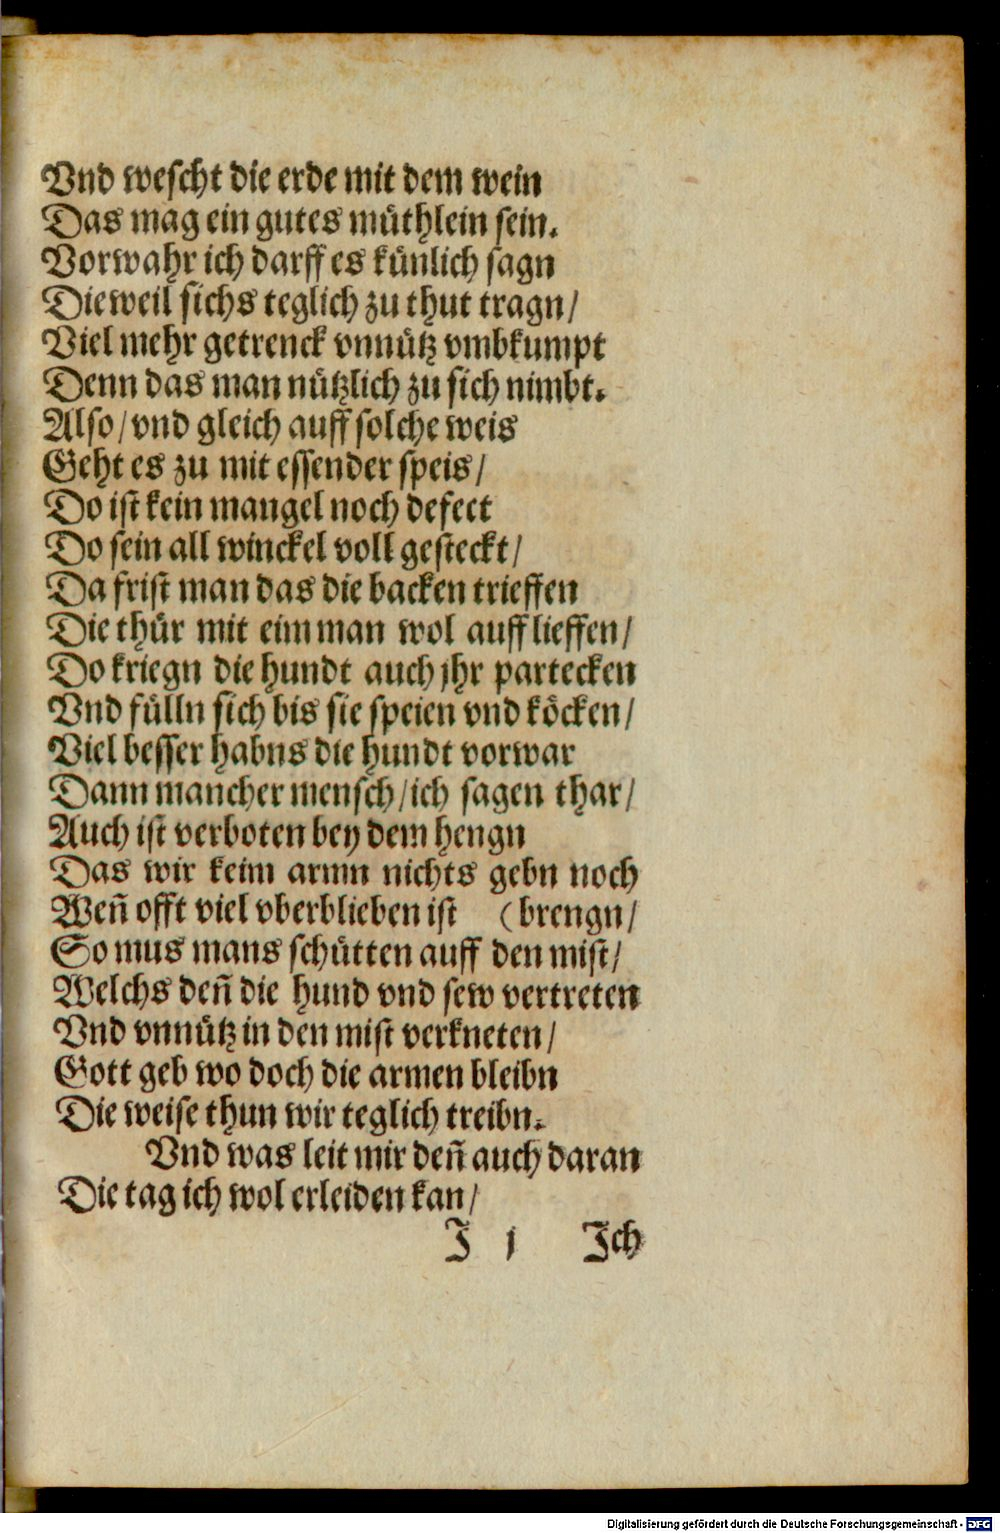 Vnd wescht die erde mit dem wein
Das mag ein gutes müthlein sein.
Vorwahr ich darff es künlich sagn
Dieweil sichs teglich zu thut tragn/
Viel mehr getrenck vnnütz vmbkumpt
Denn das man nützlich zu sich nimbt.
Also/ vnd gleich auff solche weis
Geht es zu mit essender speis/
Do ist kein mangel noch defect
Do sein all winckel voll gesteckt/
Da frist man das die backen trieffen
Die thür mit eim man wol auff lieffen/
Do kriegn die hundt auch jhr partecken
Vnd fülln sich bis sie speien vnd köcken/
Viel besser habns die hundt vorwar
Dann mancher mensch/ ich sagen thar/
Auch ist verboten bey dem hengn
Das wir keim armn nichts gebn noch
Weñ offt viel vberblieben ist (brengn/
So mus mans schütten auff den mist/
Welchs deñ die hund vnd sew vertreten
Vnd vnnütz in den mist verkneten/
Gott geb wo doch die armen bleibn
Die weise thun wir teglich treibn.
Vnd was leit mir deñ auch daran
Die tag ich wol erleiden kan/
J j Jch
Digitalisierung gefördert durch die Deutsche Forschungsgemeinschaft - DFG